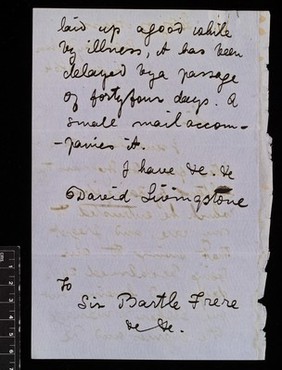 laid up a good while
by illness, it has been
delayed by a passage
of forty four days. A
small mail accom-
-panies it.
I have &c &c
David Livingstone
To
Sir Bartle Frere
&c &c.